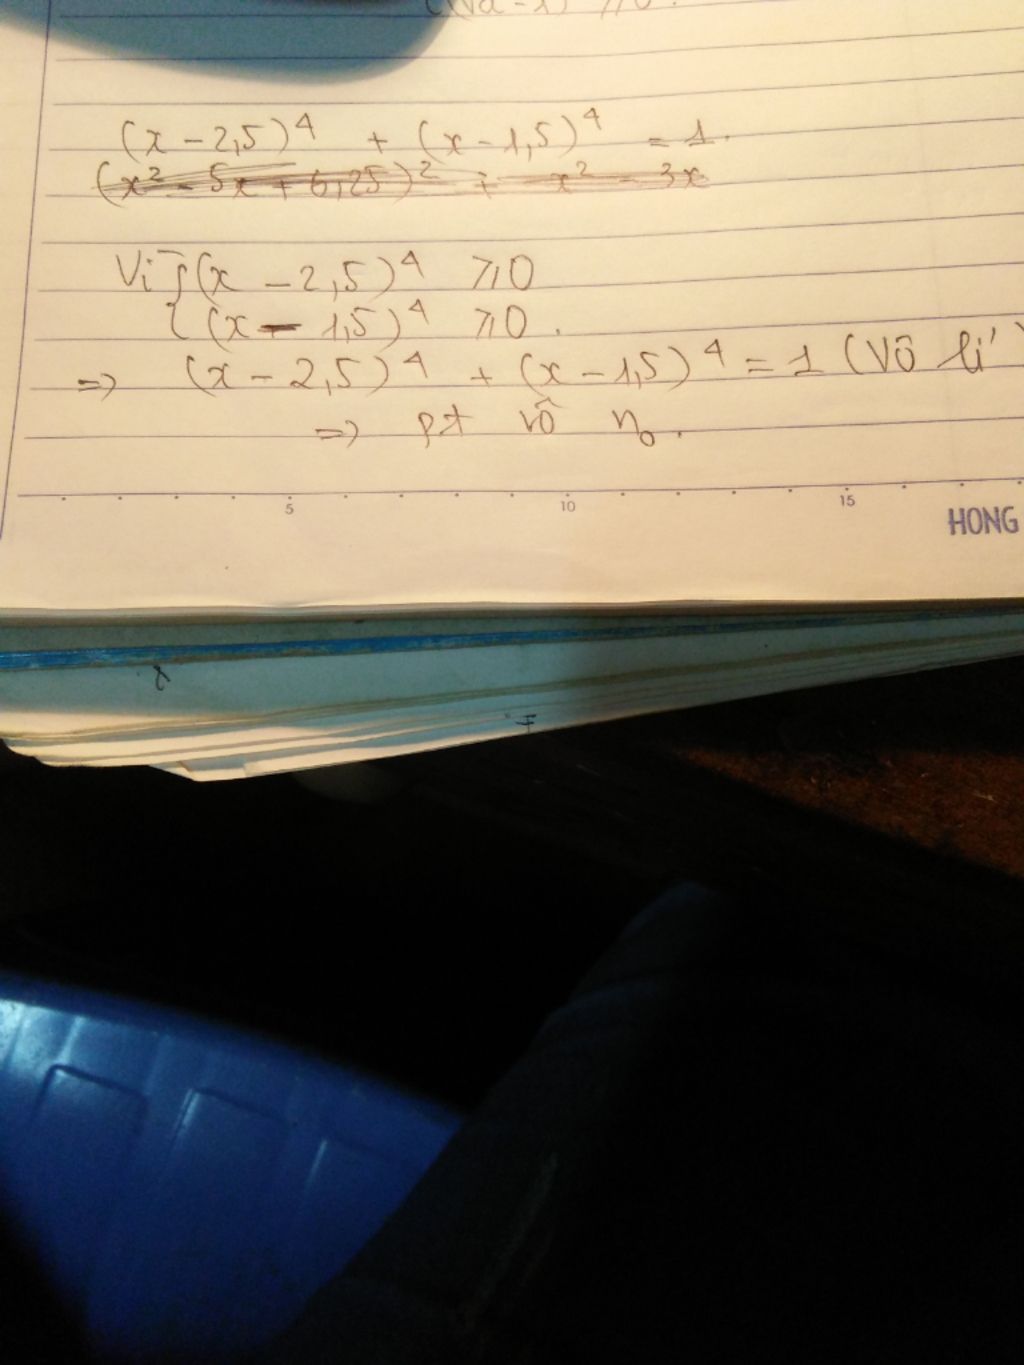 (√a - 1) ≥ 0.
(x - 2,5)⁴ + (x - 1,5)⁴ = 1.
(x² - 5x + 6,25)² + x² - 3x
Vì {(x - 2,5)⁴ ≥ 0
{(x - 1,5)⁴ ≥ 0.
=> (x - 2,5)⁴ + (x - 1,5)⁴ = 1 (Vô lí)
=> pt vô n₀.
5 10 15
HONG